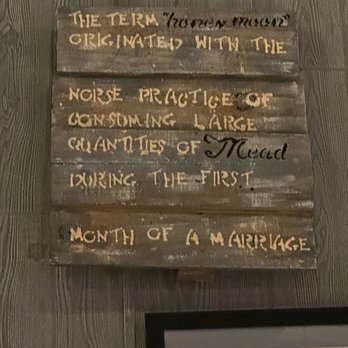 THE TERM "honey moon"
ORIGINATED WITH THE
NORSE PRACTICE OF
CONSUMING LARGE
QUANTITIES OF Mead
DURING THE FIRST
MONTH OF A MARRIAGE